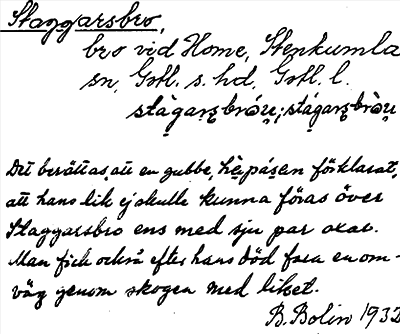 Staggarsbro,
bro vid Home, Stenkumla
sn, Gotl. s. hd, Gotl. l.
stàgarʂbróu̯; stágarʂbròu̯
Det berättas, att en gubbe, hèpáʂen förklarat,
att hans lik ej skulle kunna föras över
Staggarsbro ens med sju par oxar.
Man fick också efter hans död fara en om-
väg genom skogen med liket.
B. Bolin 1932